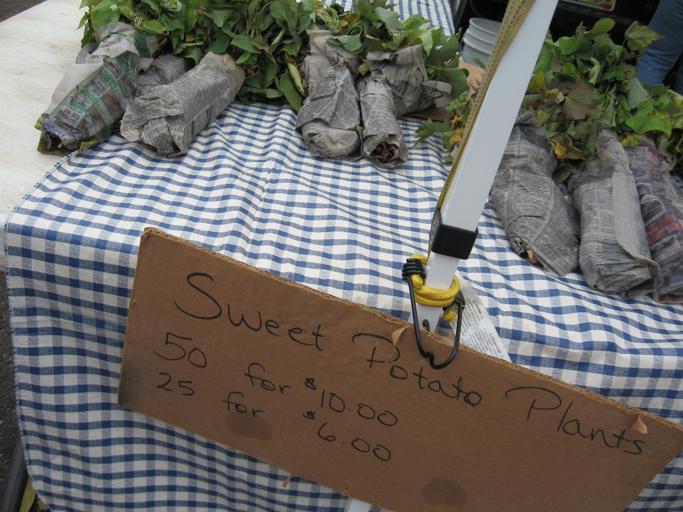 Sweet Potato Plants
50 for $10.00
25 for $6.00